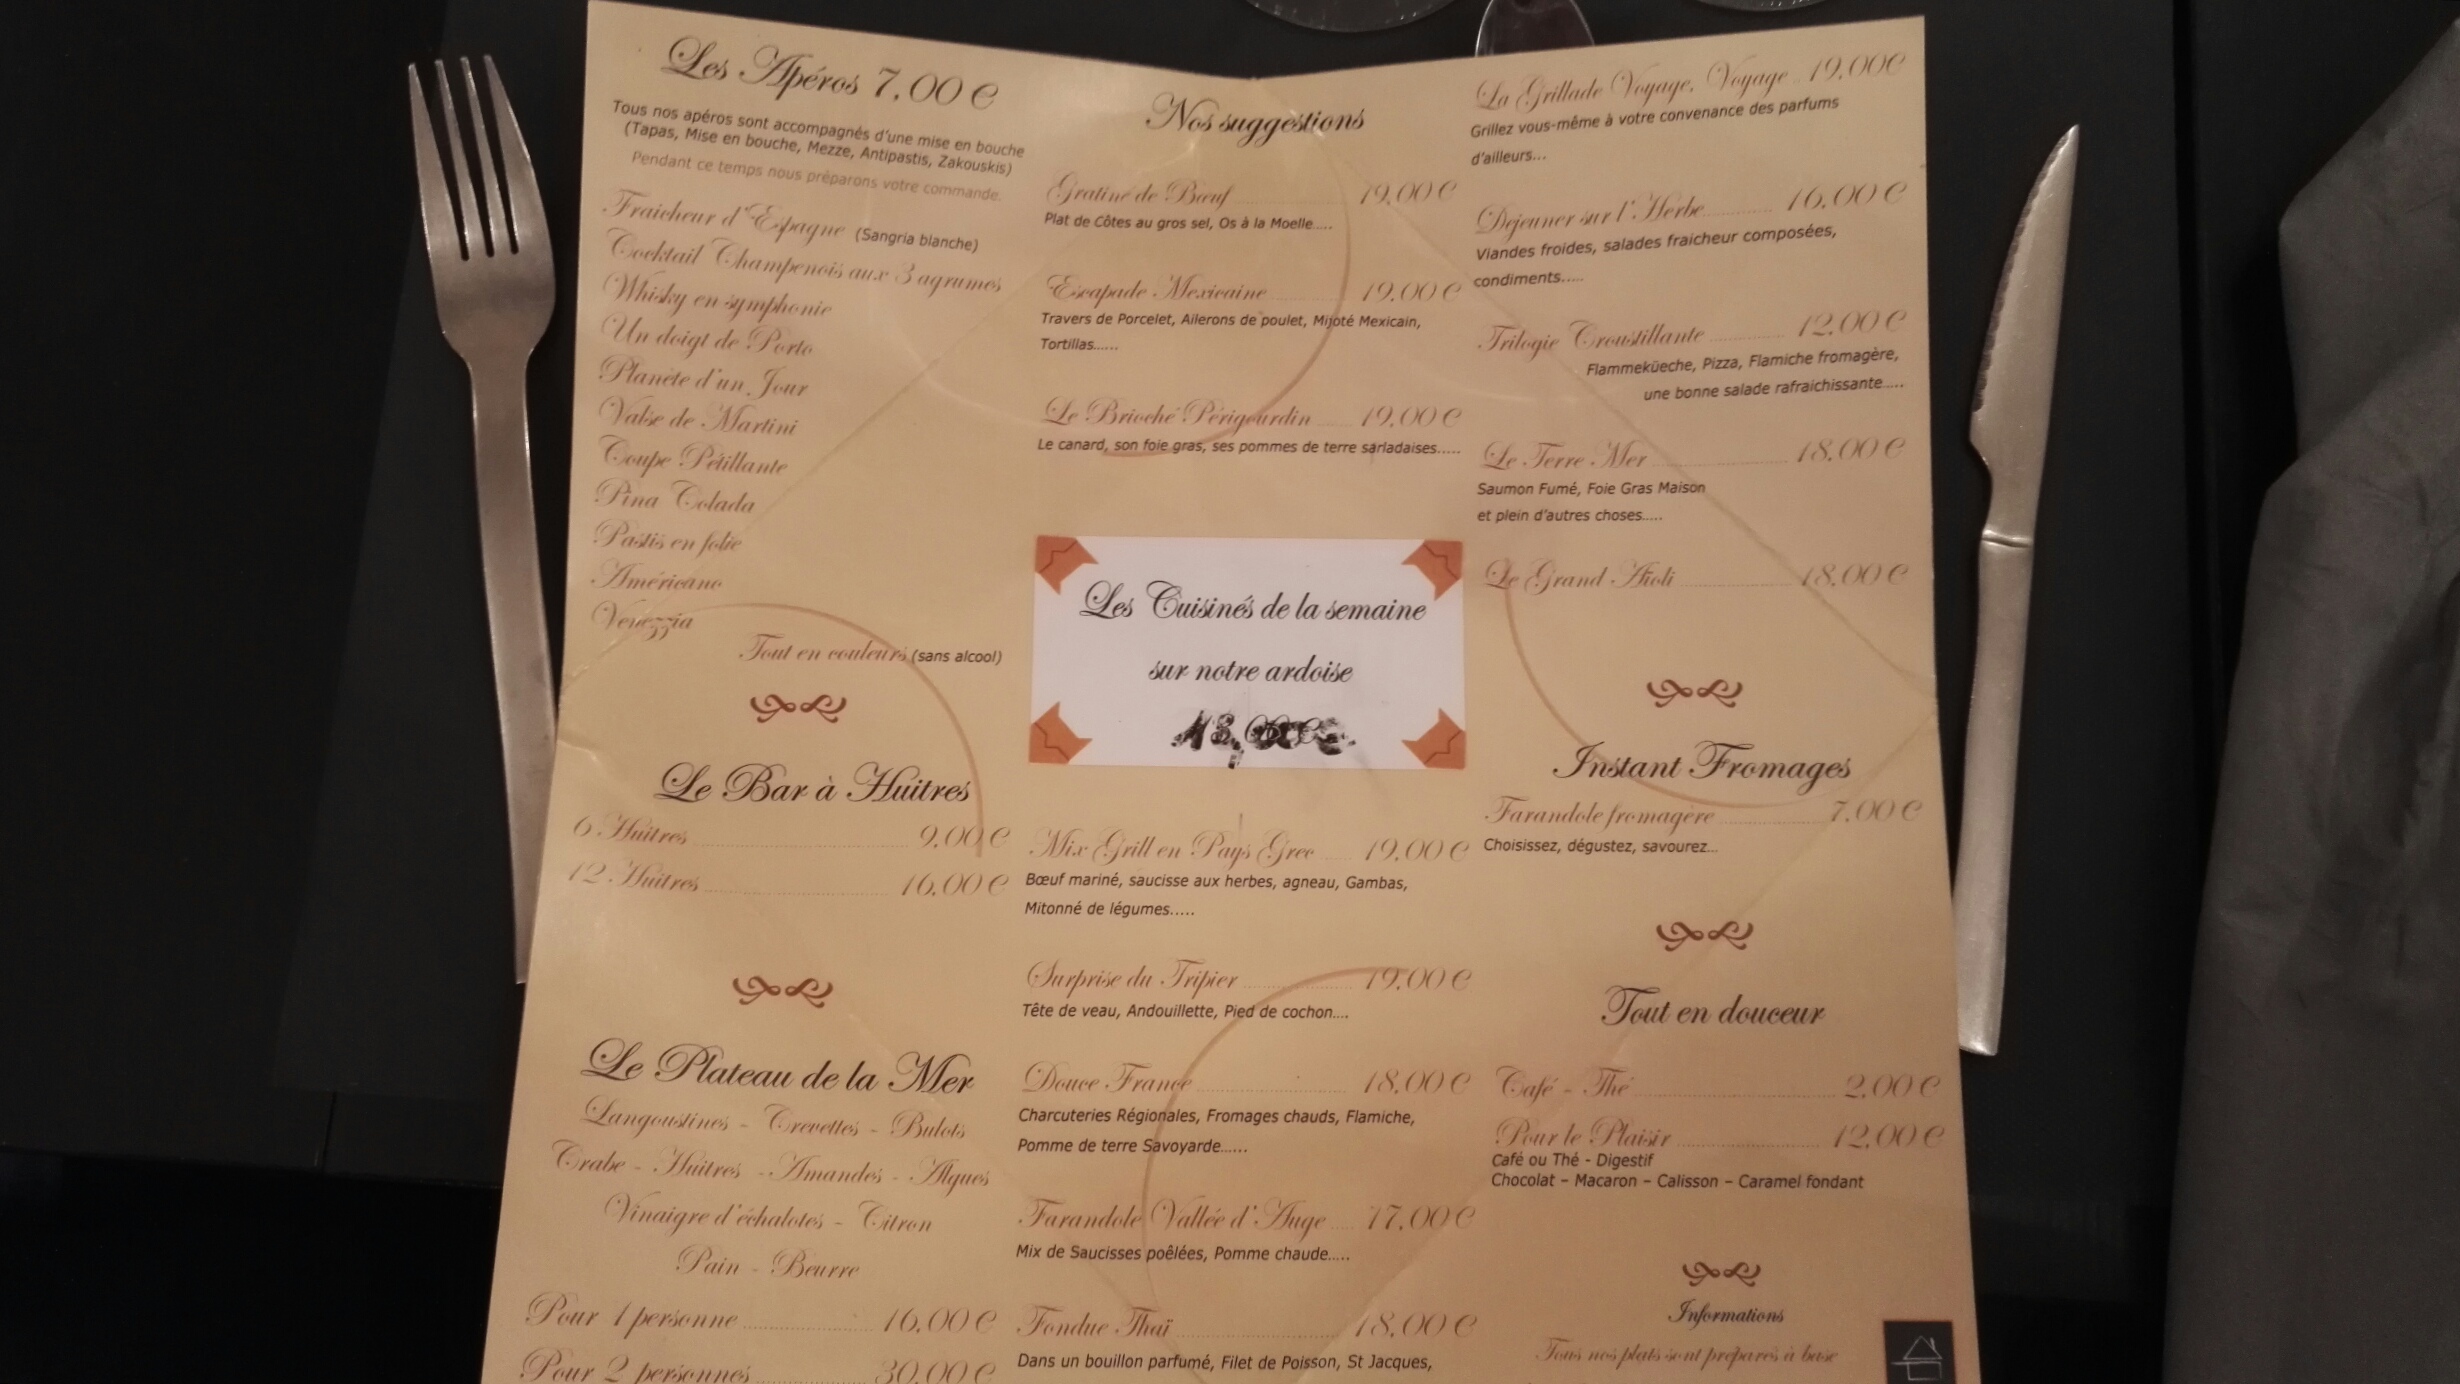 Les Apéros 7,00 €
Tous nos apéros sont accompagnés d'une mise en bouche
(Tapas, Mise en bouche, Mezze, Antipastis, Zakouskis)
Pendant ce temps nous préparons votre commande.
Fraicheur d'Espagne (Sangria blanche)
Cocktail Champenois aux 3 agrumes
Whisky en symphonie
Un doigt de Porto
Planète d'un Jour
Valse de Martini
Coupe Pétillante
Pina Colada
Pastis en folie
Américano
Venezzia
Tout en couleurs (sans alcool)
Le Bar à Huitres
6 Huîtres 9,00 €
12 Huîtres 16,00 €
Le Plateau de la Mer
Langoustines - Crevettes - Bulots
Crabe - Huîtres - Amandes - Algues
Vinaigre d'échalotes - Citron
Pain - Beurre
Pour 1 personne 16,00 €
Pour 2 personnes 30,00 €
Nos suggestions
Gratiné de Bœuf 19,00 €
Plat de Côtes au gros sel, Os à la Moelle.....
Escapade Mexicaine 19,00 €
Travers de Porcelet, Ailerons de poulet, Mijoté Mexicain,
Tortillas......
Le Brioché Périgourdin 19,00 €
Le canard, son foie gras, ses pommes de terre sarladaises.....
Les Cuisinés de la semaine
sur notre ardoise
Mix Grill en Pays Grec 19,00 €
Bœuf mariné, saucisse aux herbes, agneau, Gambas,
Mitonné de légumes.....
Surprise du Tripier 19,00 €
Tête de veau, Andouillette, Pied de cochon....
Douce France 18,00 €
Charcuteries Régionales, Fromages chauds, Flamiche,
Pomme de terre Savoyarde......
Farandole Vallée d'Auge 17,00 €
Mix de Saucisses poêlées, Pomme chaude.....
Fondue Thaï 18,00 €
Dans un bouillon parfumé, Filet de Poisson, St Jacques,
La Grillade Voyage, Voyage 19,00€
Grillez vous-même à votre convenance des parfums
d'ailleurs...
Dejeuner sur l'Herbe 16,00 €
Viandes froides, salades fraicheur composées,
condiments.....
Trilogie Croustillante 12,00 €
Flammeküeche, Pizza, Flamiche fromagère,
une bonne salade rafraichissante.....
Le Terre Mer 18,00 €
Saumon Fumé, Foie Gras Maison
et plein d'autres choses.....
Le Grand Aïoli 18,00 €
Instant Fromages
Farandole fromagère 7,00 €
Choisissez, dégustez, savourez...
Tout en douceur
Café - Thé 2,00 €
Pour le Plaisir 12,00 €
Café ou Thé - Digestif
Chocolat – Macaron – Calisson – Caramel fondant
Informations
Tous nos plats sont préparés à base